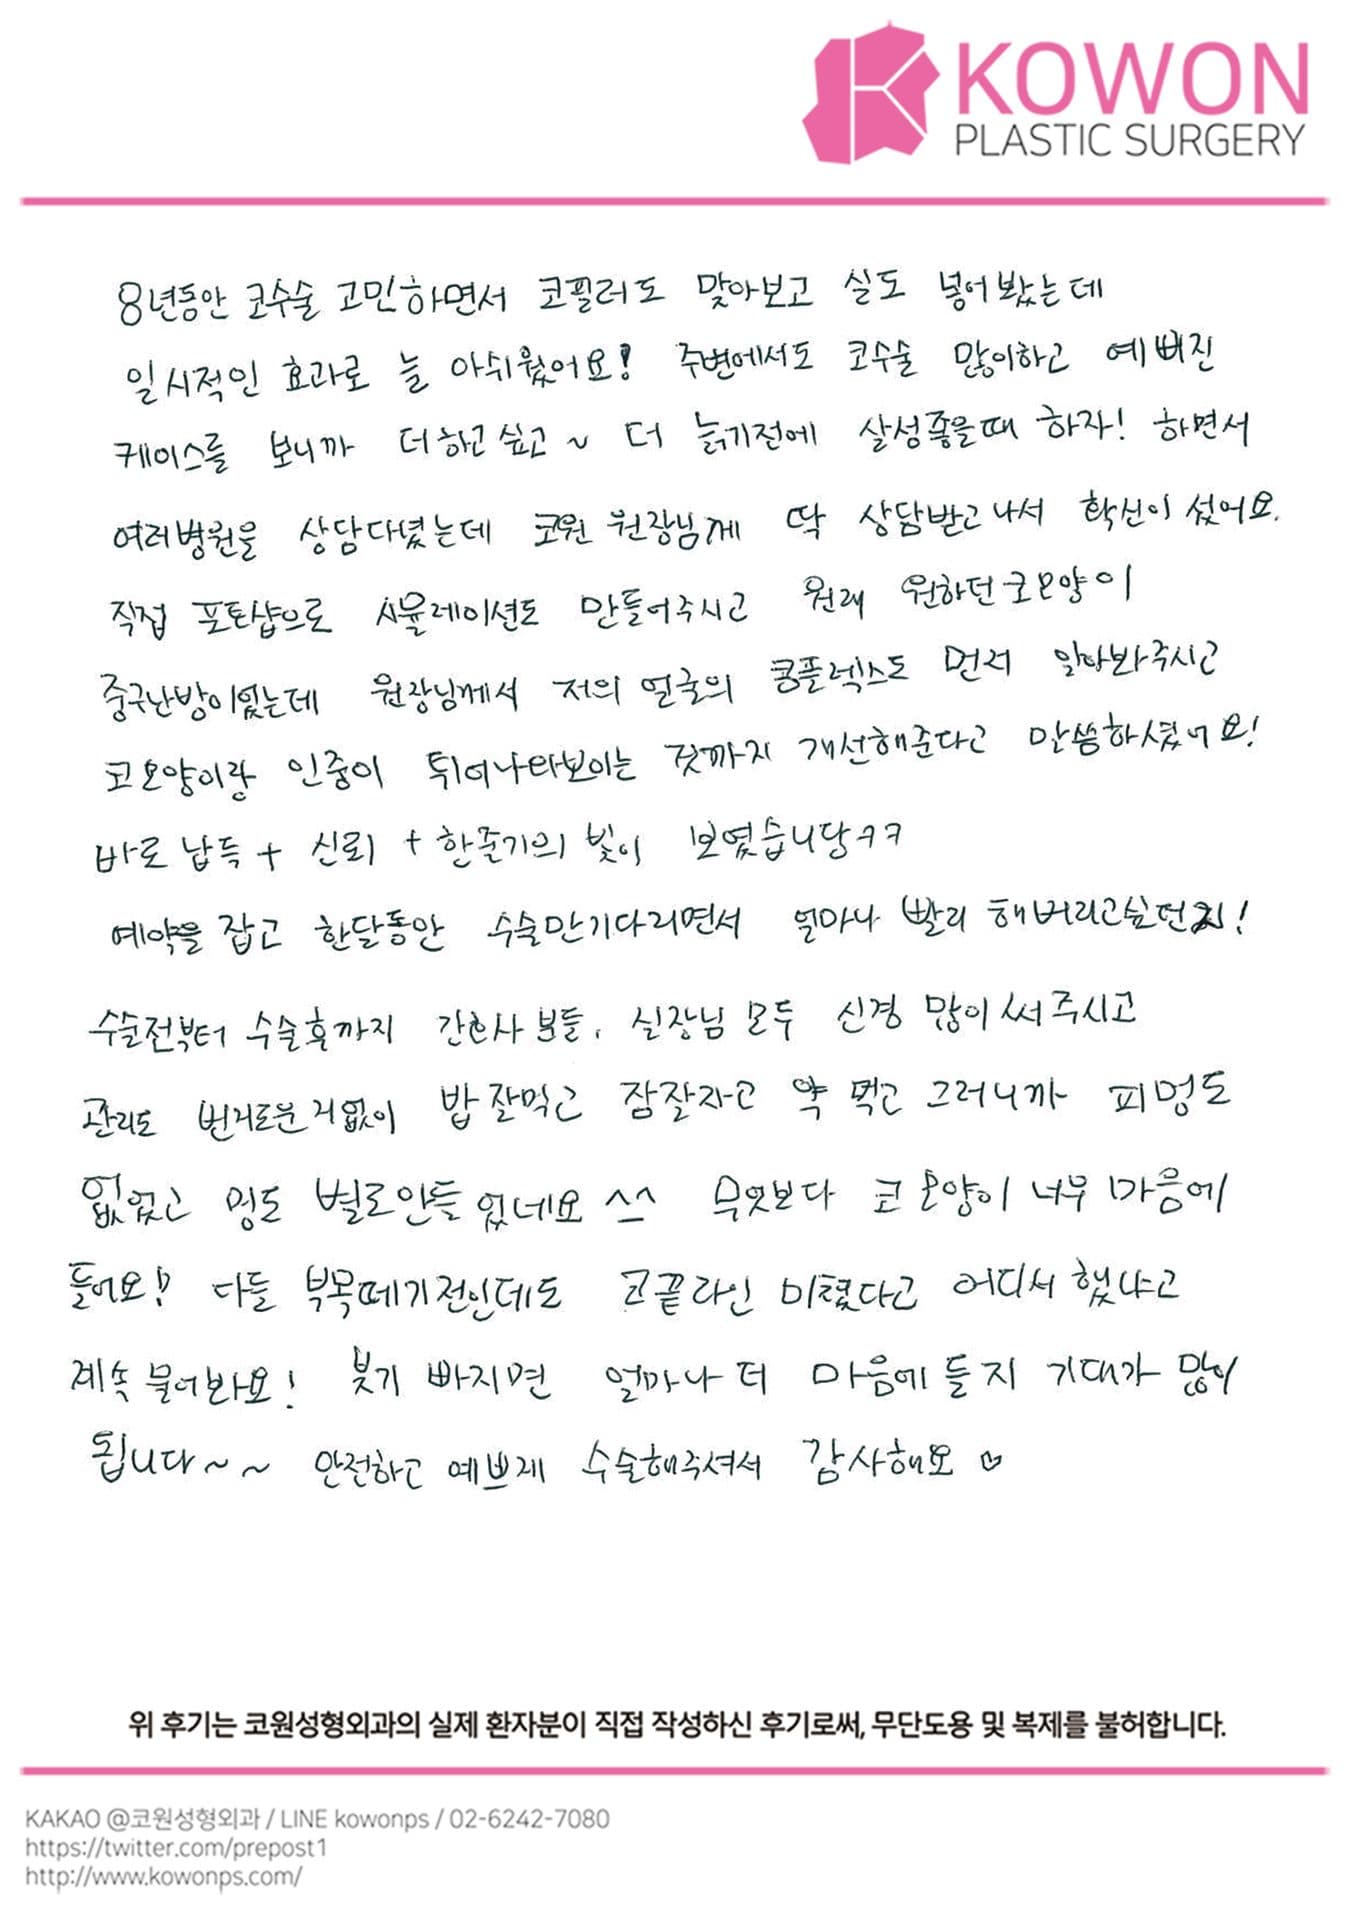 KOWON
PLASTIC SURGERY
8년동안 코수술 고민하면서 코필러도 맞아보고 실도 넣어봤는데
일시적인 효과로 늘 아쉬웠어요! 주변에서도 코수술 많이하고 예뻐진
케이스를 보니까 더하고싶고~ 더 늙기전에 살성좋을때 하자! 하면서
여러병원을 상담다녔는데 코원 원장님께 딱 상담받고나서 확신이 섰어요.
직접 포토샵으로 시뮬레이션도 만들어주시고 원래 원하던코모양이
중구난방이었는데 원장님께서 저의 얼굴의 콤플렉스도 먼저 알아봐주시고
코모양이랑 인중이 튀어나와보이는 것까지 개선해준다고 말씀하셨어요!
바로 납득 + 신뢰 + 한줄기의 빛이 보였습니당ㅋㅋ
예약을 잡고 한달동안 수술만기다리면서 얼마나 빨리 해버리고싶던지!
수술전부터 수술후까지 간호사분들, 실장님 모두 신경 많이써주시고
관리도 번거로운거없이 밥잘먹고 잠잘자고 약 먹고 그러니까 피멍도
없었고 멍도 별로안들었네요 ^^ 무엇보다 코모양이 너무 마음에
들어요! 다들 부목떼기전인데도 코끝라인 미쳤다고 어디서했냐고
계속물어봐요! 붓기 빠지면 얼마나 더 마음에들지 기대가 많이
됩니다~~ 안전하고 예쁘게 수술해주셔서 감사해요 ♡
위 후기는 코원성형외과의 실제 환자분이 직접 작성하신 후기로써, 무단도용 및 복제를 불허합니다.
KAKAO @코원성형외과 / LINE kowonps / 02-6242-7080
https://twitter.com/prepost1
http://www.kowonps.com/